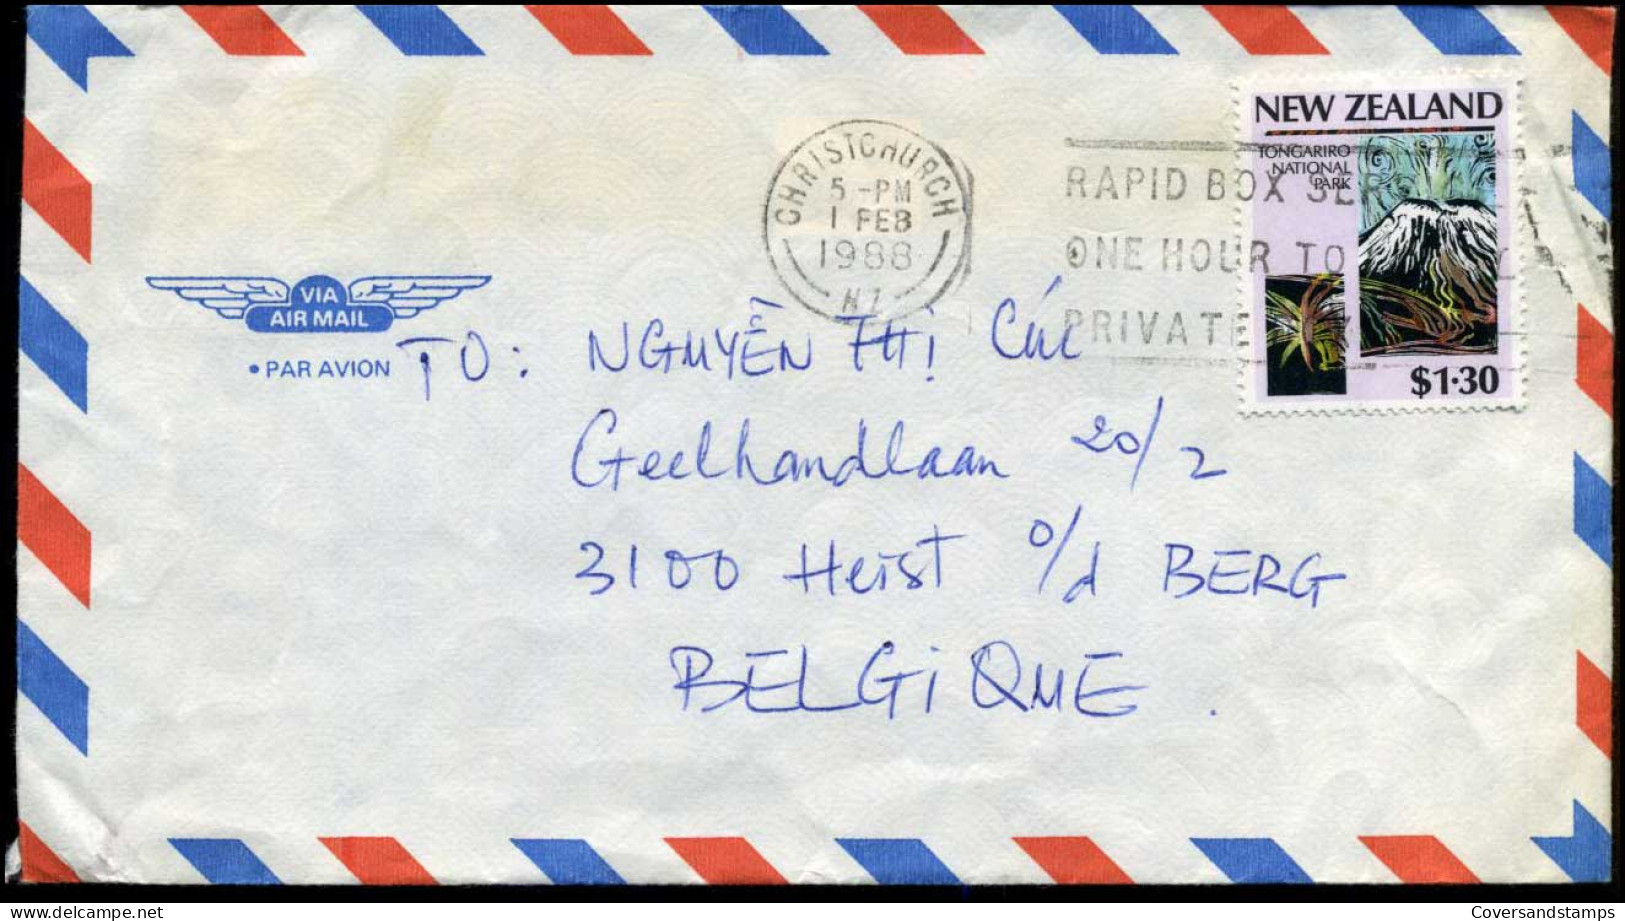 NEW ZEALAND
TONGARIRO
NATIONAL
PARK
$1·30
CHRISTCHURCH
5 -PM
1 FEB
1988
NZ
RAPID BOX SE
ONE HOUR TO
PRIVATE
VIA
AIR MAIL
• PAR AVION
TO: NGUYỄN THỊ Cúc
Geelhandlaan 20/2
3100 Heist o/d BERG
BELGIQUE.
Coversandstamps